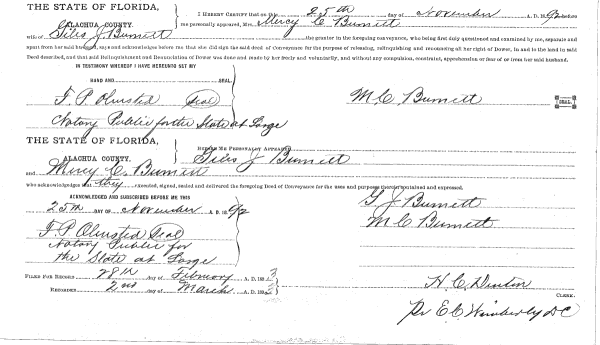 THE STATE OF FLORIDA,
ALACHUA COUNTY.
I HEREBY CERTIFY that on this 25th day of November A. D. 1892 before
me personally appeared, Mrs. Mercy C Burnett
wife of Giles J Burnett the grantor in the foregoing conveyance, who being first duly questioned and examined by me, separate and
apart from her said husband, says and acknowledges before me that she did sign the said deed of Conveyance for the purpose of releasing, relinquishing and renouncing all her right of Dower, in and to the land in said
Deed described, and that said Relinquishment and Renunciation of Dower was done and made by her freely and voluntarily, and without any compulsion, constraint, apprehension or fear of or from her said husband.
IN TESTIMONY WHEREOF I HAVE HEREUNTO SET MY
HAND AND SEAL.
F. P. Olmsted Seal
M C Burnett SEAL.
Notary Public for the State at Large
THE STATE OF FLORIDA,
ALACHUA COUNTY.
BEFORE ME PERSONALLY APPEARED
Giles J Burnett
and Mercy C. Burnett
who acknowledges that they executed, signed, sealed and delivered the foregoing Deed of Conveyance for the uses and purposes therein contained and expressed.
ACKNOWLEDGED AND SUBSCRIBED BEFORE ME THIS
25th DAY OF November A. D. 1892
G. J Burnett
M C Burnett
F P Olmsted Seal
Notary Public for
the State at Large
FILED FOR RECORD 28th day of February A. D. 1893
RECORDED 2nd day of March A. D. 1893
H. C. Denton CLERK.
Pr E. C. Wimberly DC